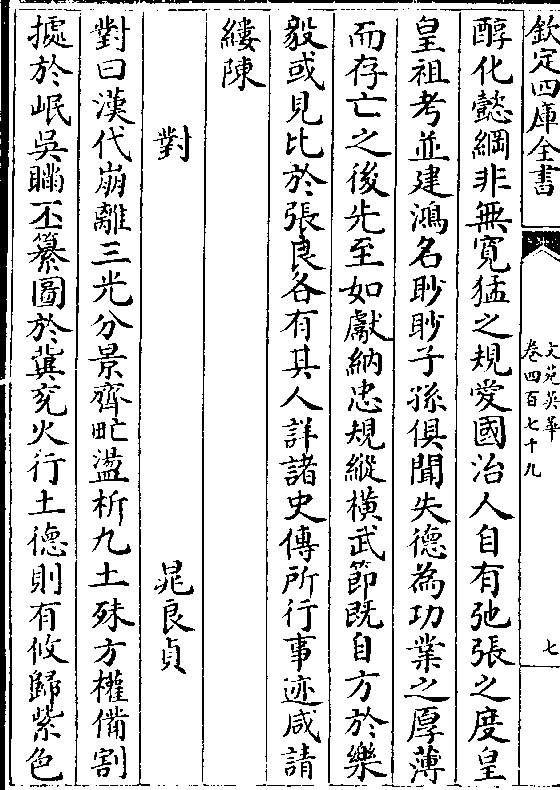 欽定四庫全書
文苑英華
卷四百七十九
七
醇化懿綱非無寛猛之規愛國治人自有弛張之度皇
皇祖考並建鴻名眇眇子孫俱聞失德為功業之厚薄
而存亡之後先至如獻納忠規縱横武節既自方於樂
毅或見比於張良各有其人詳諸史傳所行事迹咸請
縷陳
對
晁良貞
對曰漢代崩離三光分景齊甿盪析九土殊方權備割
據於岷吳瞞丕纂圖於冀兖火行土德則有攸歸紫色